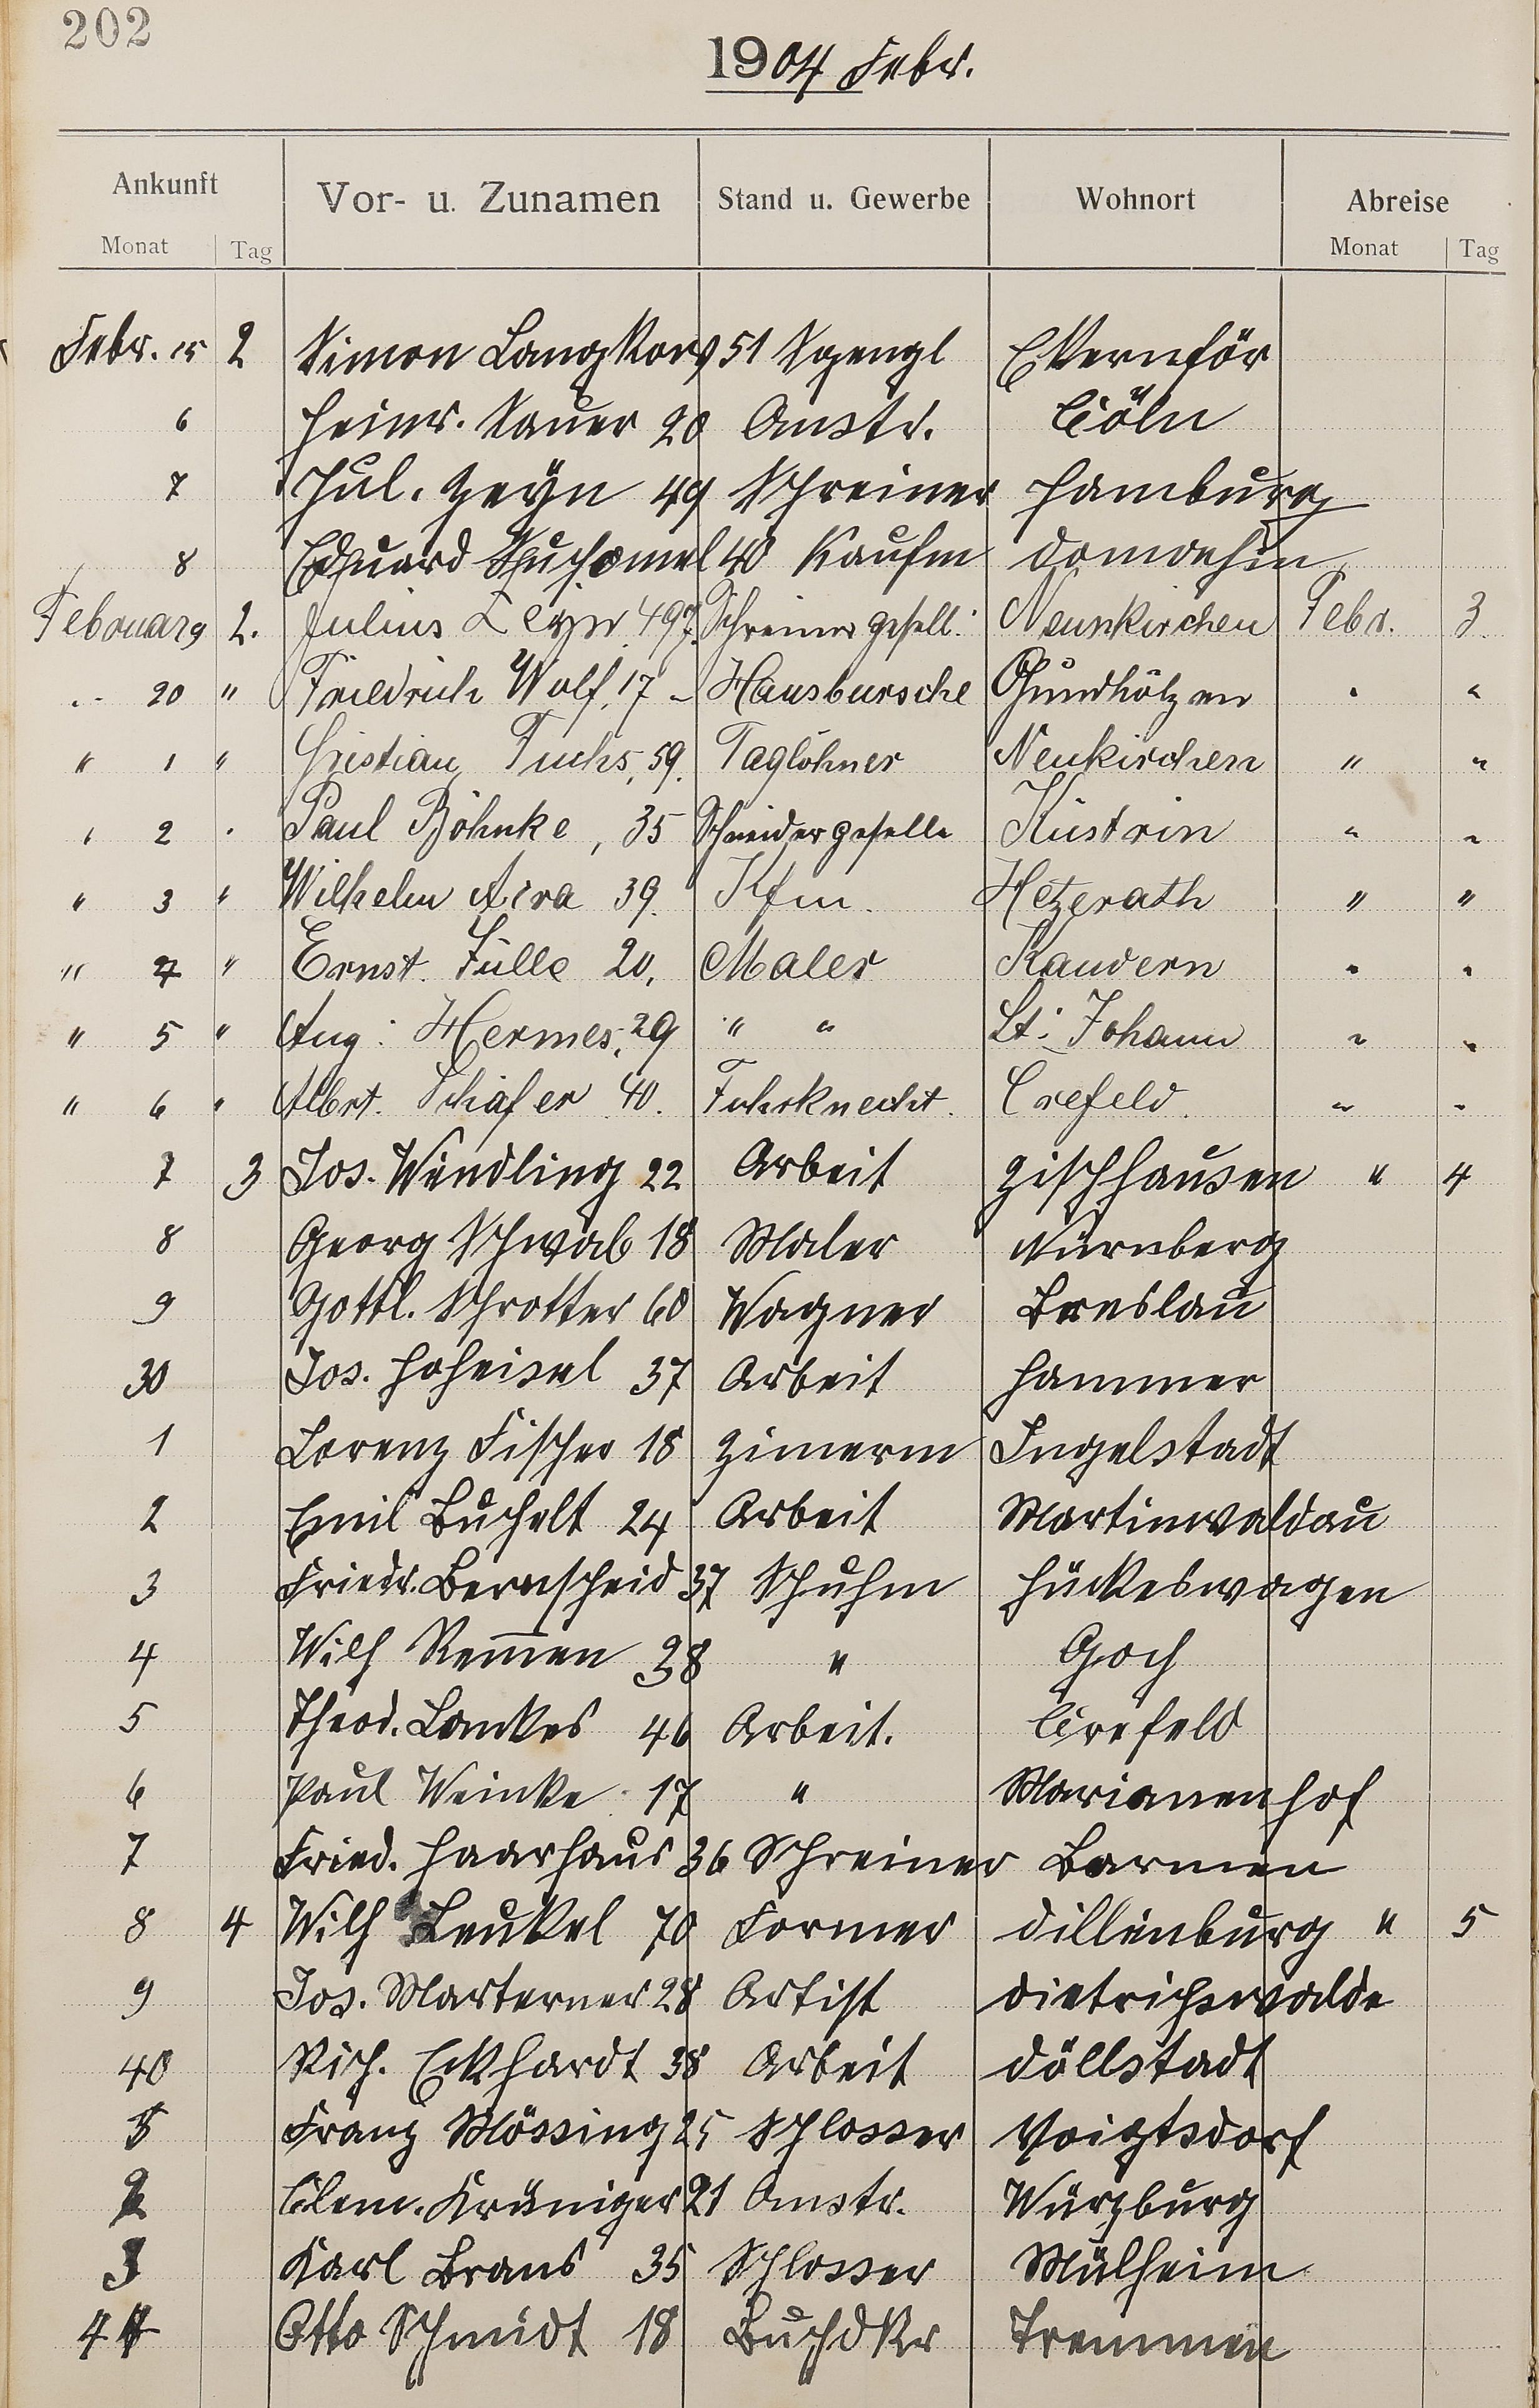 202
1904 Febr.
Ankunft Vor- u. Zunamen Stand u. Gewerbe Wohnort Abreise
Monat Tag Monat Tag
Febr. 15 2 Simon Langkorf 51 Spengl Ekernför
6 Heinr. Sauer 20 Anstr. Cöln
7 Jul. Zeyn 49 Schreiner Hamburg
8 Eduard 40 Kaufm
Februarg 2. Julius Zeyn 49 Schreiner gesell. Neunkirchen Febr. 3.
" 20 " Friedrich Wolf, 17 Hausbursche " "
" 1 " Cristian Fuchs, 59. Taglöhner Neukirchen " "
" 2 " Paul Böhnke, 35 Schneidergeselle Küstrin " "
" 3 " Wilhelm 39. Kfm. Hetzerath " "
" 4 " Ernst Fülle 20, Maler Kandern " "
" 5 " Aug: Hermes, 29 " " St: Johann " "
" 6 " Albrt. Schäfer 40. Fuhrknecht. Crefeld. " "
7 3 Jos. Wendling 22 Arbeit Zischhausen " 4
8 Georg Schwab 18 Maler Nürnberg
9 Gottl. Schrotter 60 Wagner Breslau
30 Jos. Hoheisel 37 Arbeit Hammer
1 Lorenz Fischer 18 Zimerm Ingelstadt
2 Emil Buchelt 24 Arbeit Martinwaldau
3 Friedr. Bernscheid 37 Schuhm Hückeswagen
4 Wilh Remen 38 " Goch
5 Theod. Lankes 46 Arbeit. Crefeld
6 Paul Weinke 17 " Marianenhof
7 Fried. Haarhaus 36 Schreiner Barmen
8 4 Wilh Leukel 70 Former Dillenburg " 5
9 Jos. Marterner 28 Artist Dietrichswalde
40 Rich. Eckhardt 38 Arbeit Döllstadt
Franz Mössing 25 Schlosser Voigtsdorf
2 Clem. Krüniger 21 Anstr. Würzburg
3 Karl Brans 35 Schlosser Mülheim
44 Otto Schmidt 18 Buchdkr Tremmen